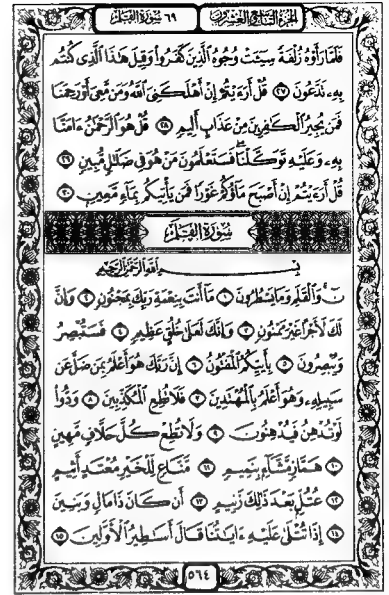 الجزء التاسع والعشرون ٦٩ سورة القلم
فَلَمَّا رَأَوْهُ زُلْفَةً سِيٓـَٔتْ وُجُوهُ ٱلَّذِينَ كَفَرُوا۟ وَقِيلَ هَـٰذَا ٱلَّذِى كُنتُم
بِهِۦ تَدَّعُونَ ٢٧ قُلْ أَرَءَيْتُمْ إِنْ أَهْلَكَنِىَ ٱللَّهُ وَمَن مَّعِىَ أَوْ رَحِمَنَا
فَمَن يُجِيرُ ٱلْكَـٰفِرِينَ مِنْ عَذَابٍ أَلِيمٍ ٢٨ قُلْ هُوَ ٱلرَّحْمَـٰنُ ءَامَنَّا
بِهِۦ وَعَلَيْهِ تَوَكَّلْنَا ۖ فَسَتَعْلَمُونَ مَنْ هُوَ فِى ضَلَـٰلٍ مُّبِينٍ ٢٩
قُلْ أَرَءَيْتُمْ إِنْ أَصْبَحَ مَآؤُكُمْ غَوْرًا فَمَن يَأْتِيكُم بِمَآءٍ مَّعِينٍۭ ٣٠
سُورَةُ الْقَلَمِ
بِسْمِ ٱللَّهِ ٱلرَّحْمَـٰنِ ٱلرَّحِيمِ
نٓ ۚ وَٱلْقَلَمِ وَمَا يَسْطُرُونَ ١ مَآ أَنتَ بِنِعْمَةِ رَبِّكَ بِمَجْنُونٍ ٢ وَإِنَّ
لَكَ لَأَجْرًا غَيْرَ مَمْنُونٍ ٣ وَإِنَّكَ لَعَلَىٰ خُلُقٍ عَظِيمٍ ٤ فَسَتُبْصِرُ
وَيُبْصِرُونَ ٥ بِأَييِّكُمُ ٱلْمَفْتُونُ ٦ إِنَّ رَبَّكَ هُوَ أَعْلَمُ بِمَن ضَلَّ عَن
سَبِيلِهِۦ وَهُوَ أَعْلَمُ بِٱلْمُهْتَدِينَ ٧ فَلَا تُطِعِ ٱلْمُكَذِّبِينَ ٨ وَدُّوا۟
لَوْ تُدْهِنُ فَيُدْهِنُونَ ٩ وَلَا تُطِعْ كُلَّ حَلَّافٍ مَّهِينٍ
١٠ هَمَّازٍ مَّشَّآءٍۭ بِنَمِيمٍ ١١ مَّنَّاعٍ لِّلْخَيْرِ مُعْتَدٍ أَثِيمٍ
١٢ عُتُلٍّۭ بَعْدَ ذَٰلِكَ زَنِيمٍ ١٣ أَن كَانَ ذَا مَالٍ وَبَنِينَ
١٤ إِذَا تُتْلَىٰ عَلَيْهِ ءَايَـٰتُنَا قَالَ أَسَـٰطِيرُ ٱلْأَوَّلِينَ ١٥
٥٦٤